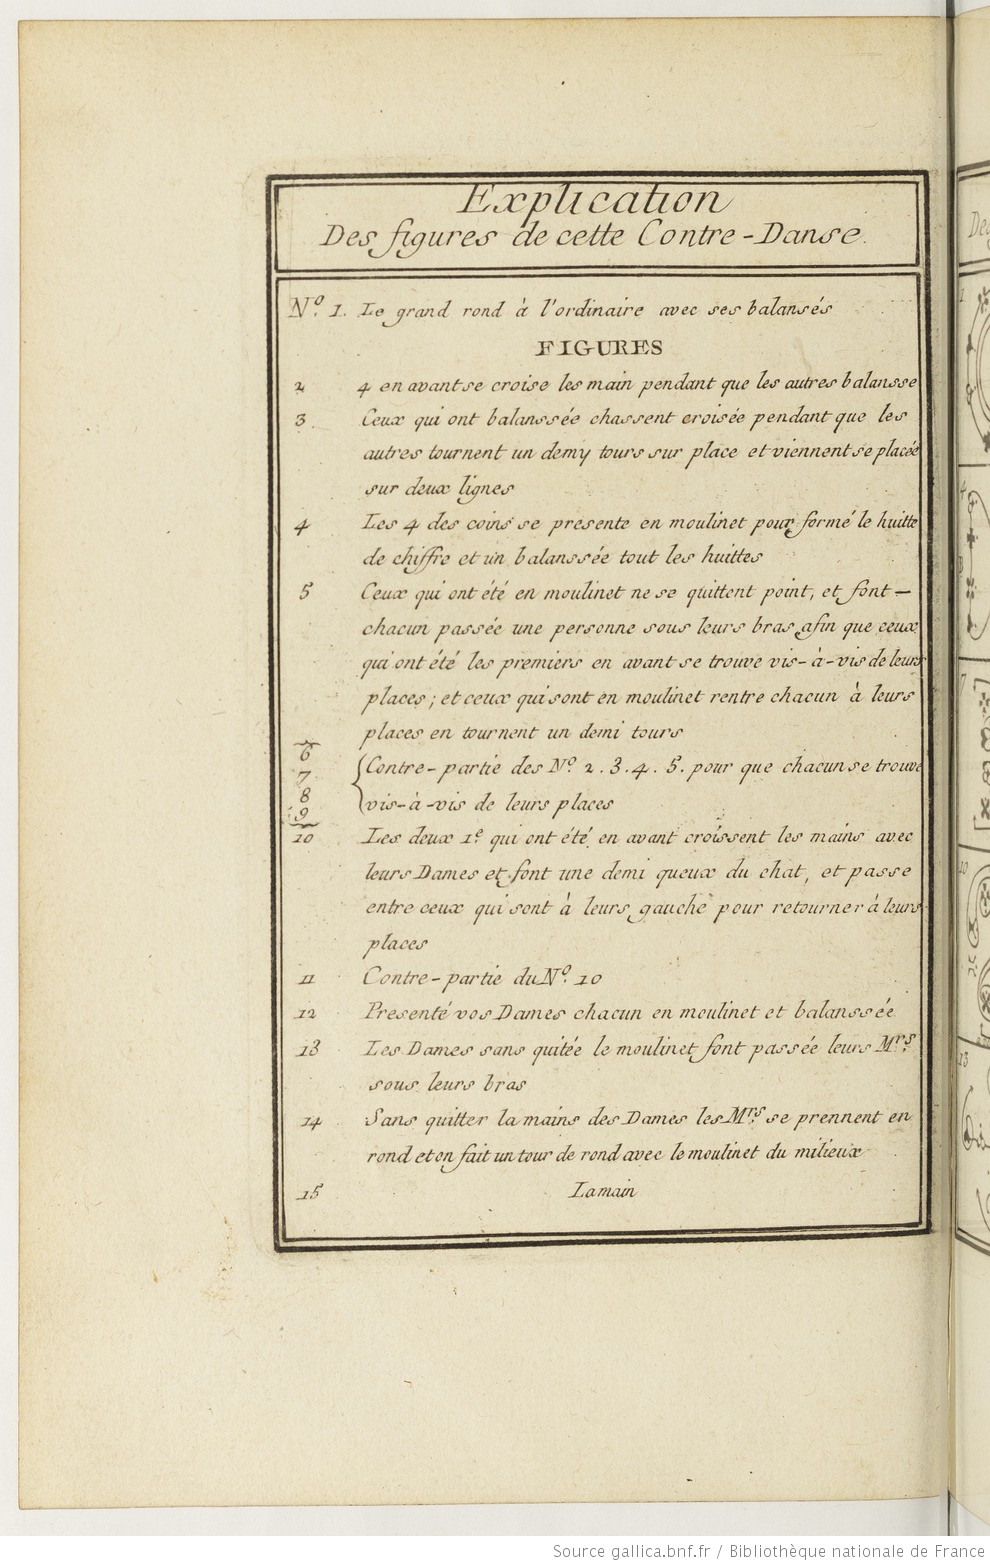 Explication
Des figures de cette Contre-Danse.
Nº. 1. Le grand rond à l'ordinaire avec ses balansés
FIGURES
2 4 en avant se croise les main pendant que les autres balansse
3. Ceux qui ont balanssée chassent croisée pendant que les
autres tournent un demy tours sur place et viennent se placée
sur deux lignes
4 Les 4 des coins se presente en moulinet pour formé le huitte
de chiffre et un balanssée tout les huittes
5 Ceux qui ont été en moulinet ne se quittent point, et font —
chacun passée une personne sous leurs bras, afin que ceux
qui ont été les premiers en avant se trouve vis-à-vis de leurs
places; et ceux qui sont en moulinet rentre chacun à leurs
places en tournent un demi tours
6
7 Contre-partie des Nº. 2. 3. 4. 5. pour que chacun se trouve
8 vis-à-vis de leurs places
9
10 Les deux 1e. qui ont été en avant croissent les mains avec
leurs Dames et font une demi queux du chat, et passe
entre ceux qui sont à leurs gauche pour retourner à leurs
places
11 Contre-partie du Nº. 10
12 Presenté vos Dames chacun en moulinet et balanssée
13 Les Dames sans quitée le moulinet font passée leurs Mrs.
sous leurs bras
14 Sans quitter la mains des Dames les Mrs. se prennent en
rond et on fait un tour de rond avec le moulinet du milieux
15 La main
De
1
4
7
10
13
Source gallica.bnf.fr / Bibliothèque nationale de France